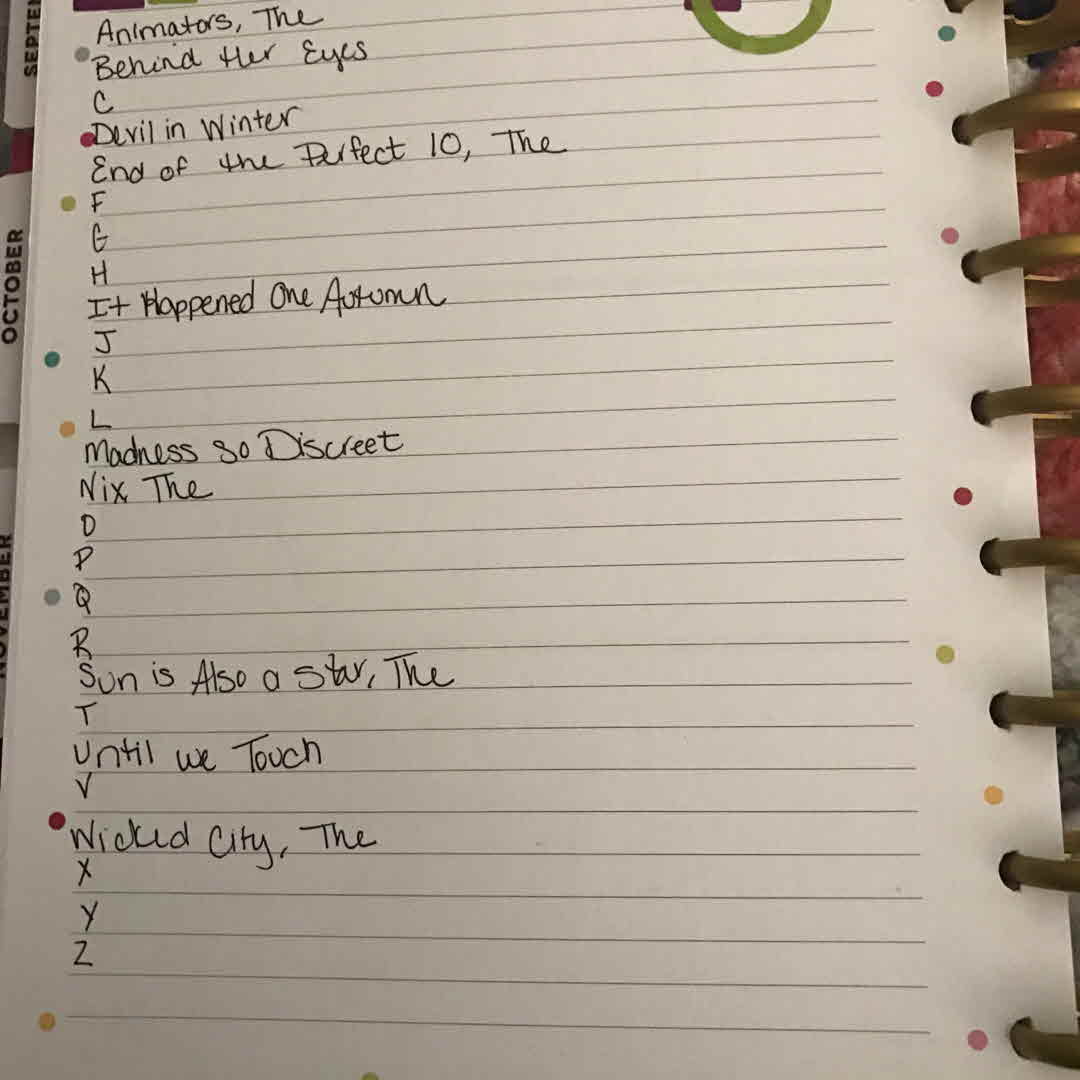 SEPTEM
Animators, The
Behind Her Eyes
C
Devil in Winter
End of the Perfect 10, The
F
G
H
OCTOBER
It Happened One Autumn
J
K
L
Madness so Discreet
Nix, The
O
P
NOVEMBER
Q
R
Sun is Also a Star, The
T
Until we Touch
V
Wicked City, The
X
Y
Z